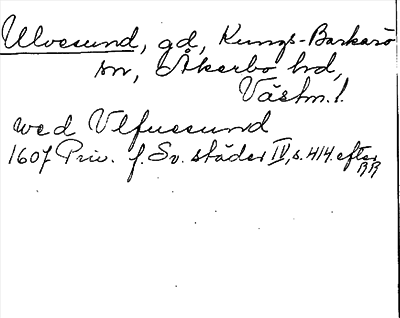 Ulvesund, gd, Kungs-Barkarö
sn, Åkerbo hd,
Västm. l.
wed Vlfuesund
1607 Priv. f. Sv. städer IV, s. 414. efter
RR